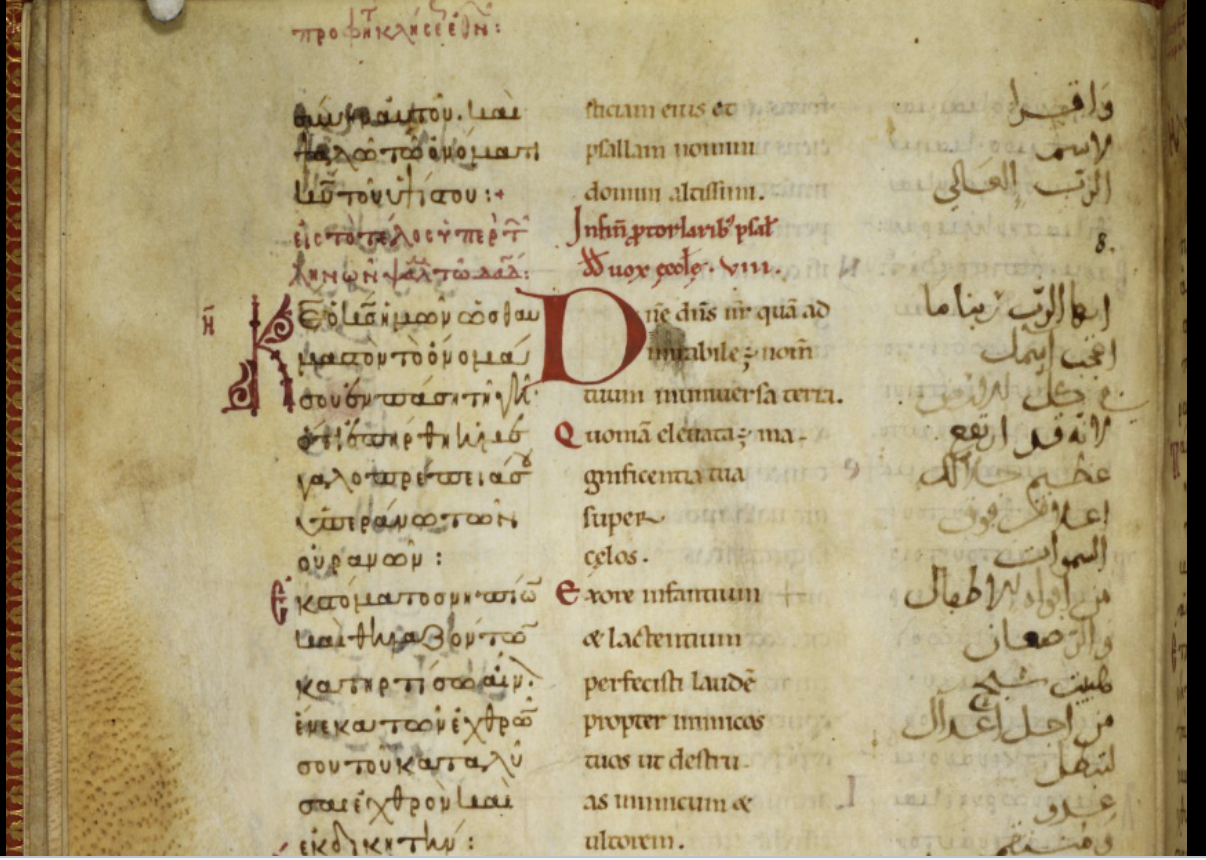 προφη κλησε εθν:
σύνην αὐτοῦ. καὶ
ψαλῶ τῶ ὀνόματι
κυ τοῦ ὑψίστου:+
εἰς τὸ τέλος ὑπὲρ τ
ληνῶν ψαλ τῶ δαδ:
η
Κε ὁ κς ἡμῶν ὡς θαυ
μαστὸν τὸ ὄνομά
σου ἐν πάση τῆ γῆ
ὅτι ἐπήρθη ἡ με
γαλοπρέπειά σου
ὑπεράνω τῶν
οὐρανῶν:
ἐκ στόματος νηπίω
καὶ θηλαζόντω
κατηρτίσω αἶν
ἕνεκα τῶν ἐχθρῶ
σου τοῦ καταλῦ
σαι ἐχθρὸν καὶ
ἐκδικητήν:
sticiam eius et
psallam nomini
domini altissimi.
Infiñ ꝓ torlarib' psal
DD uox ęccłę. VIII.
Dñe dñs nr̃ quã ad
mirabile ÷ nom̃
tuum in uniuersa terra.
Quoniã eleuata ÷ ma-
gnificentia tua
super
cęlos.
Ex ore infantium
& lactentium
perfecisti laudẽ
propter inimicos
tuos ut destru-
as inimicum &
ultorem.
لاسم
الرب العالي
8.
ايها الرب ربنا ما
اعجب اسمك
في كل الارض
لانه قد ارتفع
عظيم جلالك
اعلا من فوق
السموات
من افواه الاطفال
والرضعان
من اجل اعداك
لتبطل
عدوا